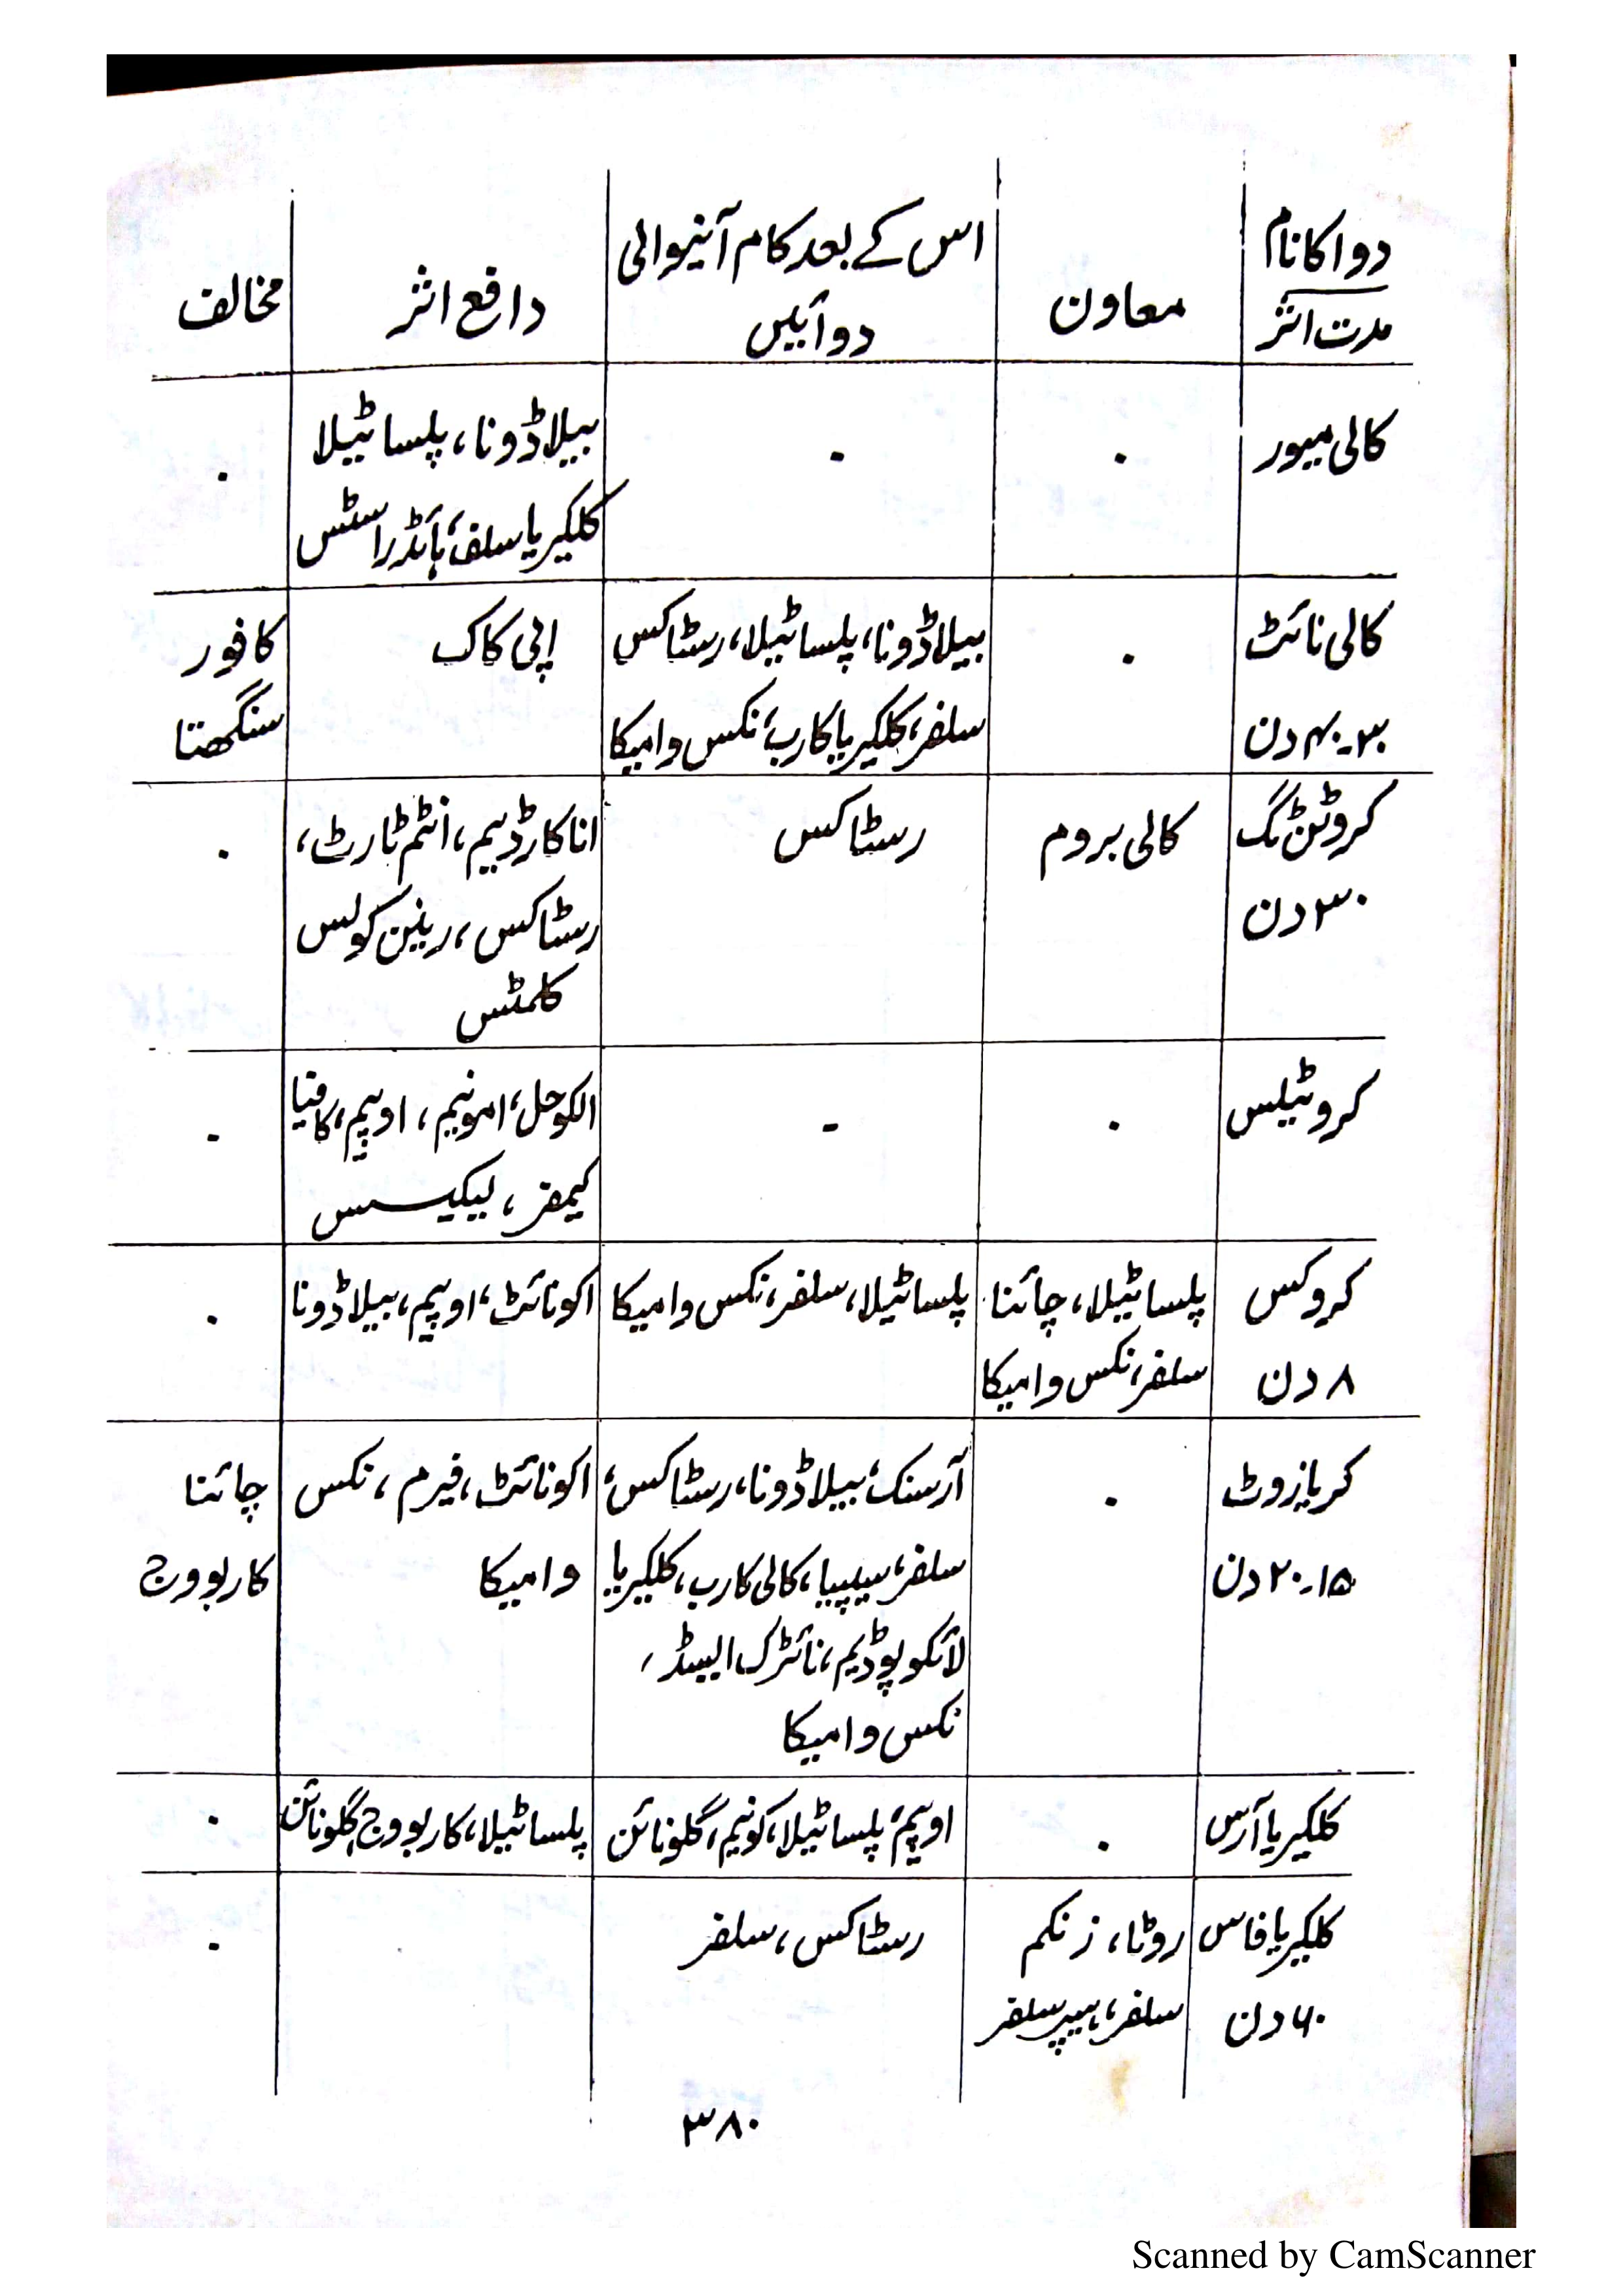 دوا کا نام
مدت اثر
معاون
اس کے بعد کام آنیوالی
دوائیں
دافع اثر
مخالف
کالی میور
.
.
بیلاڈونا، پلساٹیلا
کلکیریا سلف، ہائڈراسٹس
.
کالی نائٹ
۳۔۴ دن
.
بیلاڈونا، پلساٹیلا، رسٹاکس
سلفر، کلکیریا کارب، نکس وامیکا
اپی کاک
کافور
سنگھتا
کروٹن ٹگ
۳۰ دن
کالی بروم
رسٹاکس
اناکارڈیم، انٹم ٹارٹ،
رسٹاکس، رینن کولس
کلمٹس
.
کروٹیلس
.
-
الکوحل، امونیم، اوپیم، کافیا
کیمفر، لیکیسس
.
کروکس
۸ دن
پلساٹیلا، چائنا
سلفر، نکس وامیکا
پلساٹیلا، سلفر، نکس وامیکا
اکونائٹ، اوپیم، بیلاڈونا
.
کریازوٹ
۱۵۔۲۰ دن
.
آرسنک، بیلاڈونا، رسٹاکس،
سلفر، سیپیا، کالی کارب، کلکیریا
لائکوپوڈیم، نائٹرک ایسڈ،
نکس وامیکا
اکونائٹ، فیرم، نکس
وامیکا
چائنا
کاربووج
کلکیریا آرس
.
اوپیم، پلساٹیلا، کونیم، گلونائن
پلساٹیلا، کاربووج، گلونائن
.
کلکیریا فاس
۶۰ دن
روٹا، زنکم
سلفر، ہیپر سلفر
رسٹاکس، سلفر
.
۳۸۰
Scanned by CamScanner